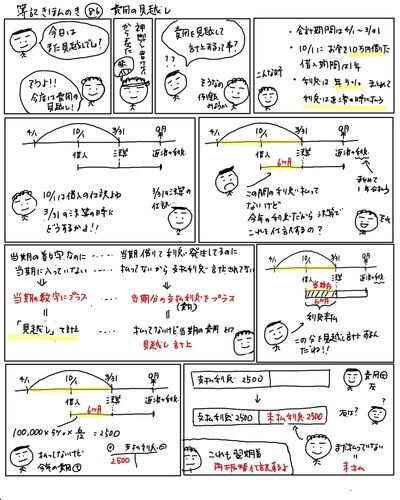 簿記きほんのき 86 費用の見越し
今日は
また見越してる?
でたよ!!
今度は費用の
見越し!
費用を見越して
計上するって事?
???
そうなの
こんな時
・会計期間は4/1〜3/31
・10/1にお金を10万円借りた
借入期間は1年
・利息は年5%
利息は返済の時に払う
4/1
10/1
3/31
9月
借入
決算
返済と利息
10/1は借入の仕訳よね
3/31の決算の時に
どうするかよ!!
4/1
10/1
3/31
9月
借入
決算
返済と利息
6ヶ月
まとめて
1年分払う
この間の利息は払って
ないけど
今年の利息だから決算で
これも仕訳するの?
当期の数字なのに
当期に入っていない
当期借りて利息が発生してるのに
払ってないから支払利息が計上されてない
当期の数字にプラス
当期分の支払利息をプラス
(費用)
「見越し」て計上
払ってないけど当期の費用として
見越し計上
4/1
10/1
3/31
9月
借入
決算
当期分
6ヶ月
利息未払
この分を見越し計上するん
だね!!
4/1
10/1
3/31
9月
借入
決算
6ヶ月
100,000×5%×6/12=2500
払ってないけど
今年の費用⊕
支払利息
2500
支払利息 2500
費用⊕
左
?
支払利息 2500 未払利息 2500
右は?
これも翌期首
再振替仕訳するよ
まだ払っていない
未払